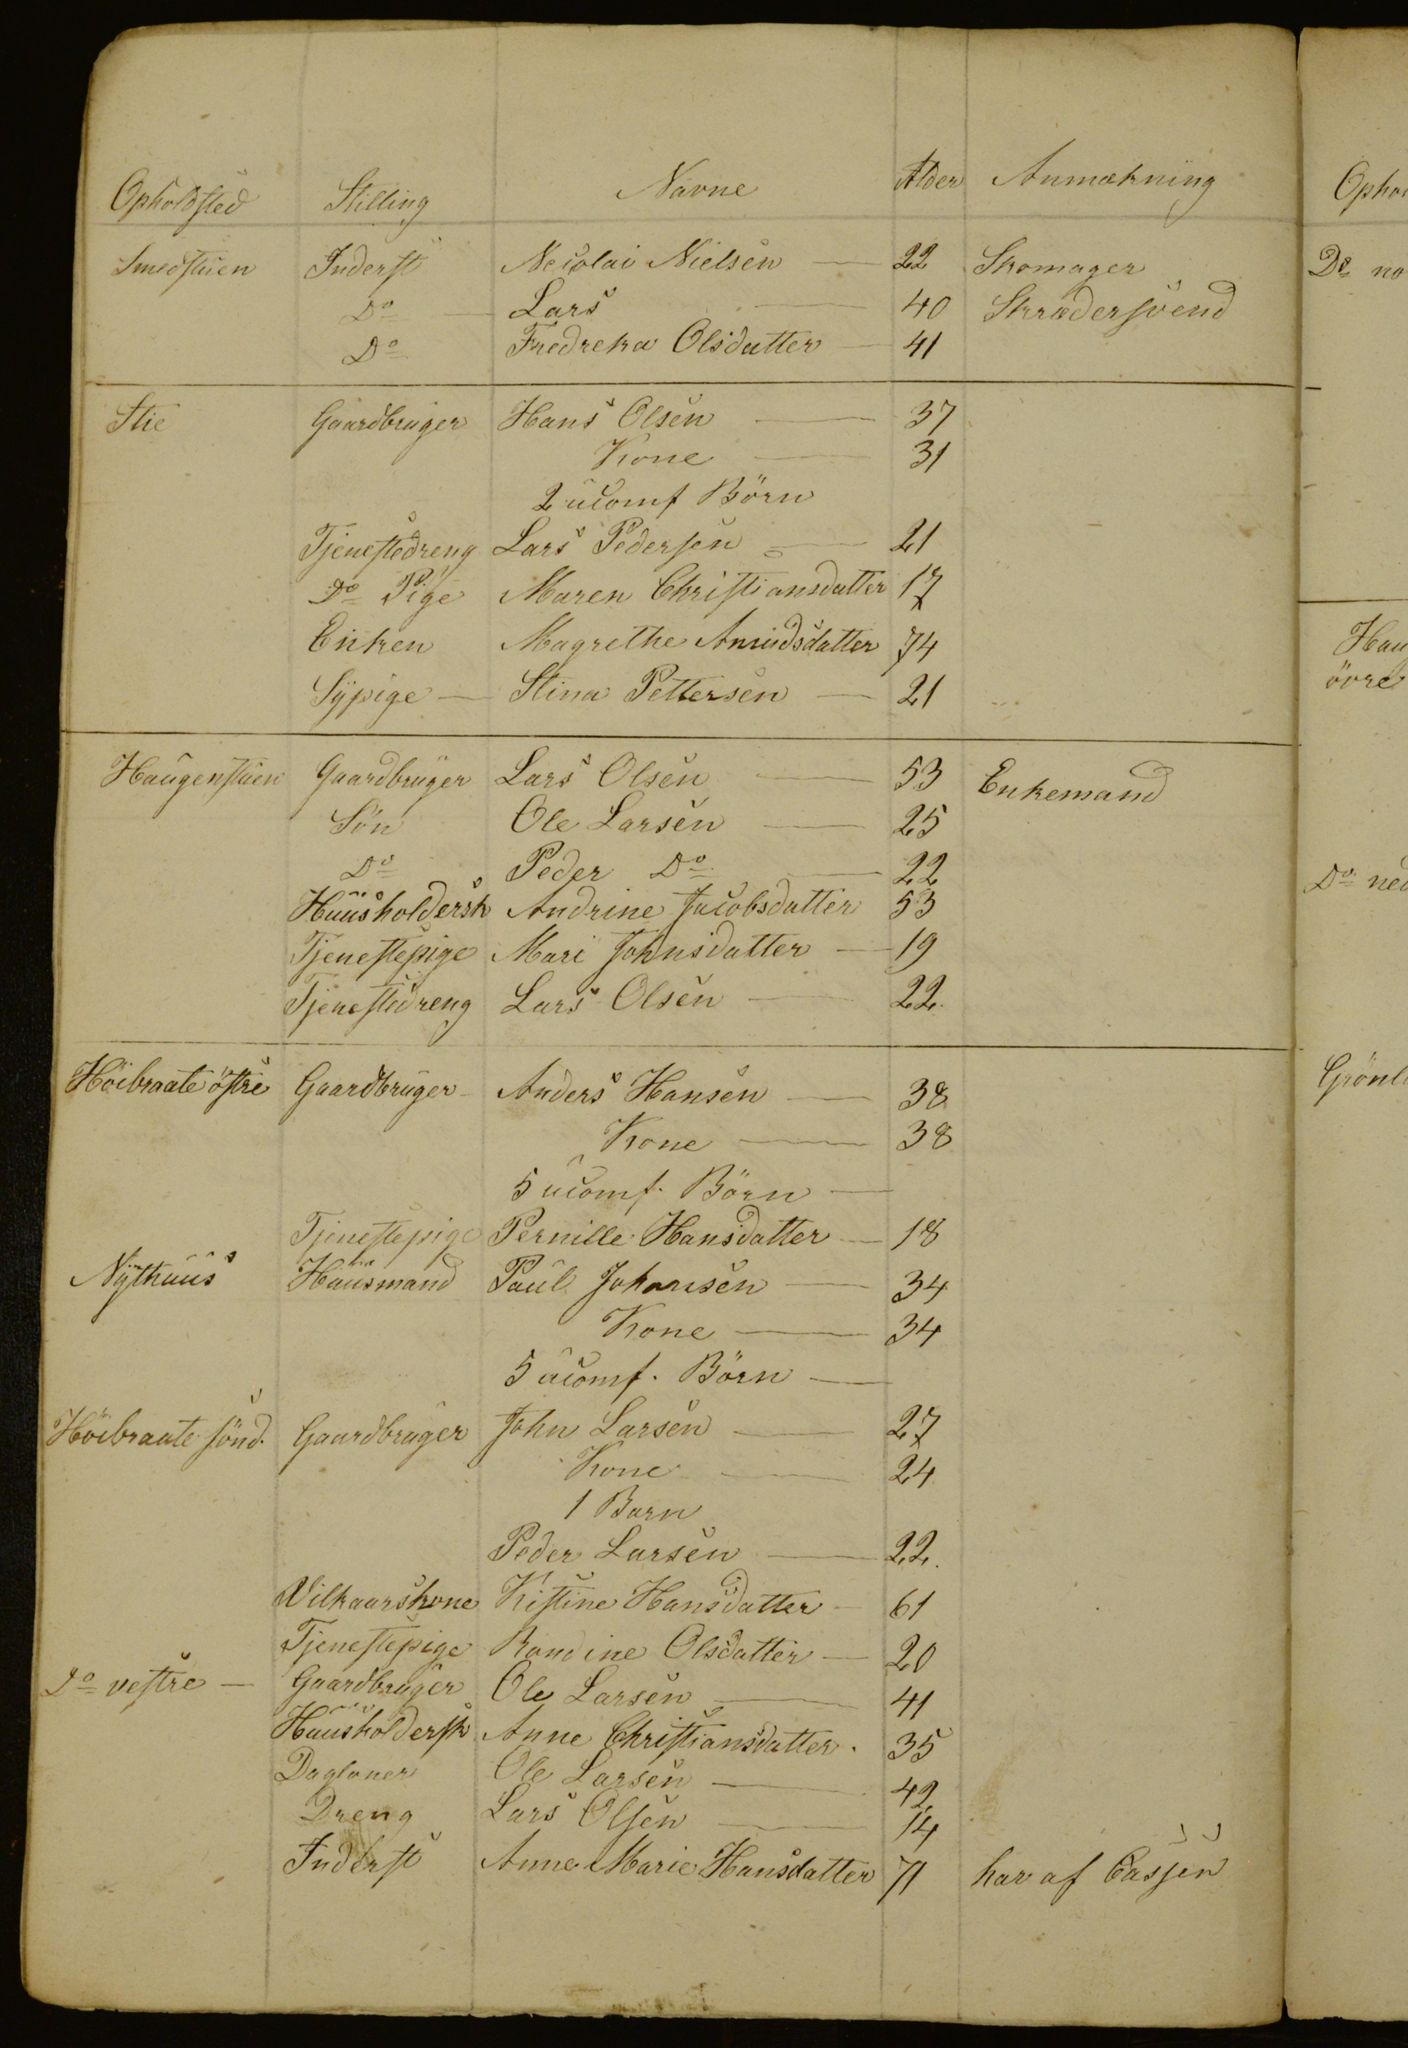 Opholdsted Stilling Navne Alder Anmærkning
Smedstuen Inderst Necolai Nielsen — 22 Skomager
Do Lars — 40 Skrædersvend
Do Fredreka Olsdatter — 41
Stie Gaardbruger Hans Olsen — 37
Kone — 31
2 uconf Börn
Tjenestedreng Lars Pedersen — 21
Do Pige Maren Christiansdatter 17
Enken Magrethe Amudsdatter 74
Sÿpige — Stina Pettersen — 21
Haugenstuen Gaardbruger Lars Olsen — 53 Enkemand
Sön Ole Larsen — 25
Do Peder Do — 22
Huusholdersk Andrine Jacobsdatter 53
Tjenestepige Mari Johnsdatter — 19
Tjenestedreng Lars Olsen — 22.
Höibraate östre Gaardbruger Anders Hansen — 38
Kone — 38
5 uconf. Börn —
Tjenestepige Pernille Hansdatter — 18
Nÿthuus Huusmand Paul Johansen — 34
Kone — 34
5 uconf. Börn —
Höibraate sönd. Gaardbruger John Larsen — 27
Kone — 24
1 Barn
Peder Larsen — 22.
Vilkaarskone Kistine Hansdatter — 61
Tjenestepige Randine Olsdatter — 20
Do vestre — Gaardbruger Ole Larsen — 41
Huusholdersk Anne Christiansdatter. 35
Dagloner Ole Larsen — 42
Dreng Lars Olsen — 14
Inderst Anne Marie Hansdatter 71 har af Cassen
Ophol
Do no
Hau
övre
Do ned
Grönl